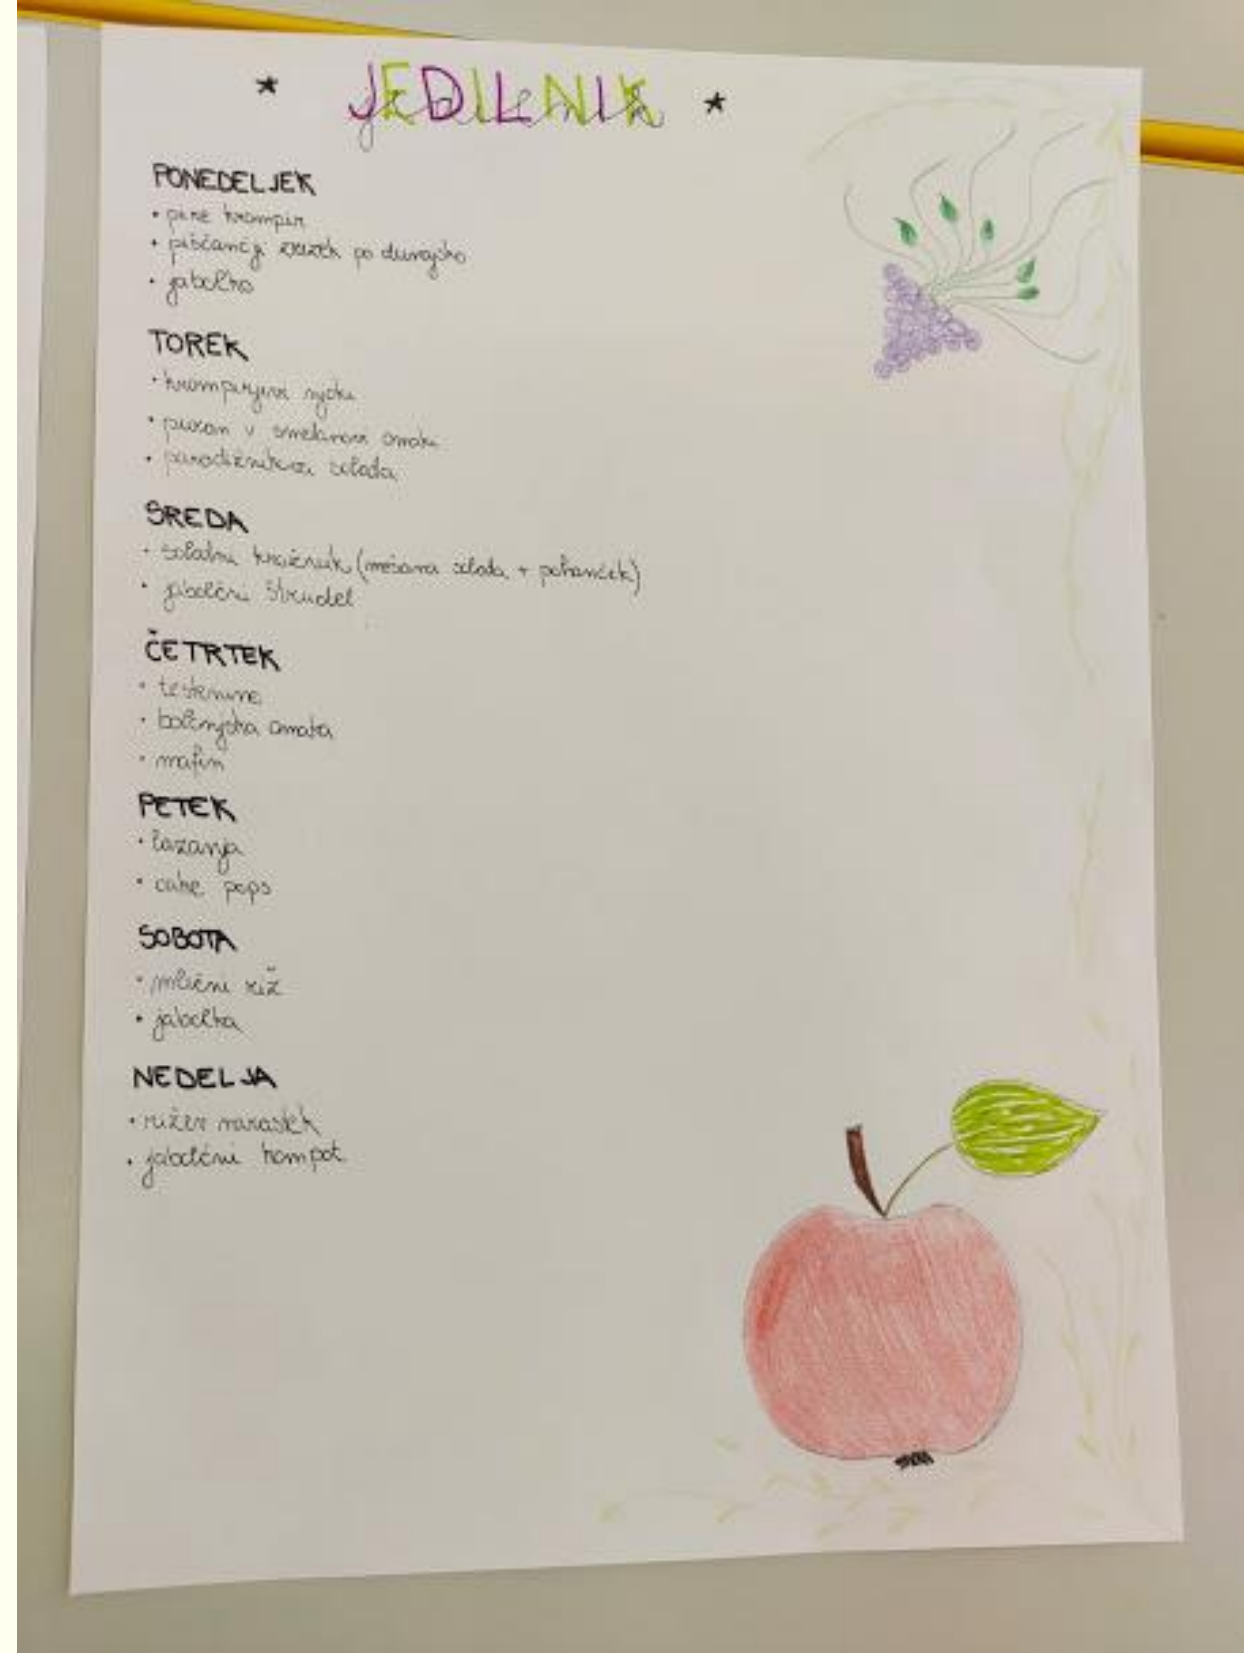 * JEDILNIK *
PONEDELJEK
• pire krompir
• piščančji zrezek po dunajsko
• jabolko
TOREK
• krompirjevi njoki
• puran v smetanovi omaki
• paradižnikova solata
SREDA
• solatni krožnik (mešana solata + pohanček)
• jabolčni štrudel
ČETRTEK
• testenine
• bolonjska omaka
• mafin
PETEK
• lazanja
• cake pops
SOBOTA
• mlečni riž
• jabolka
NEDELJA
• rižev narastek
• jabolčni kompot